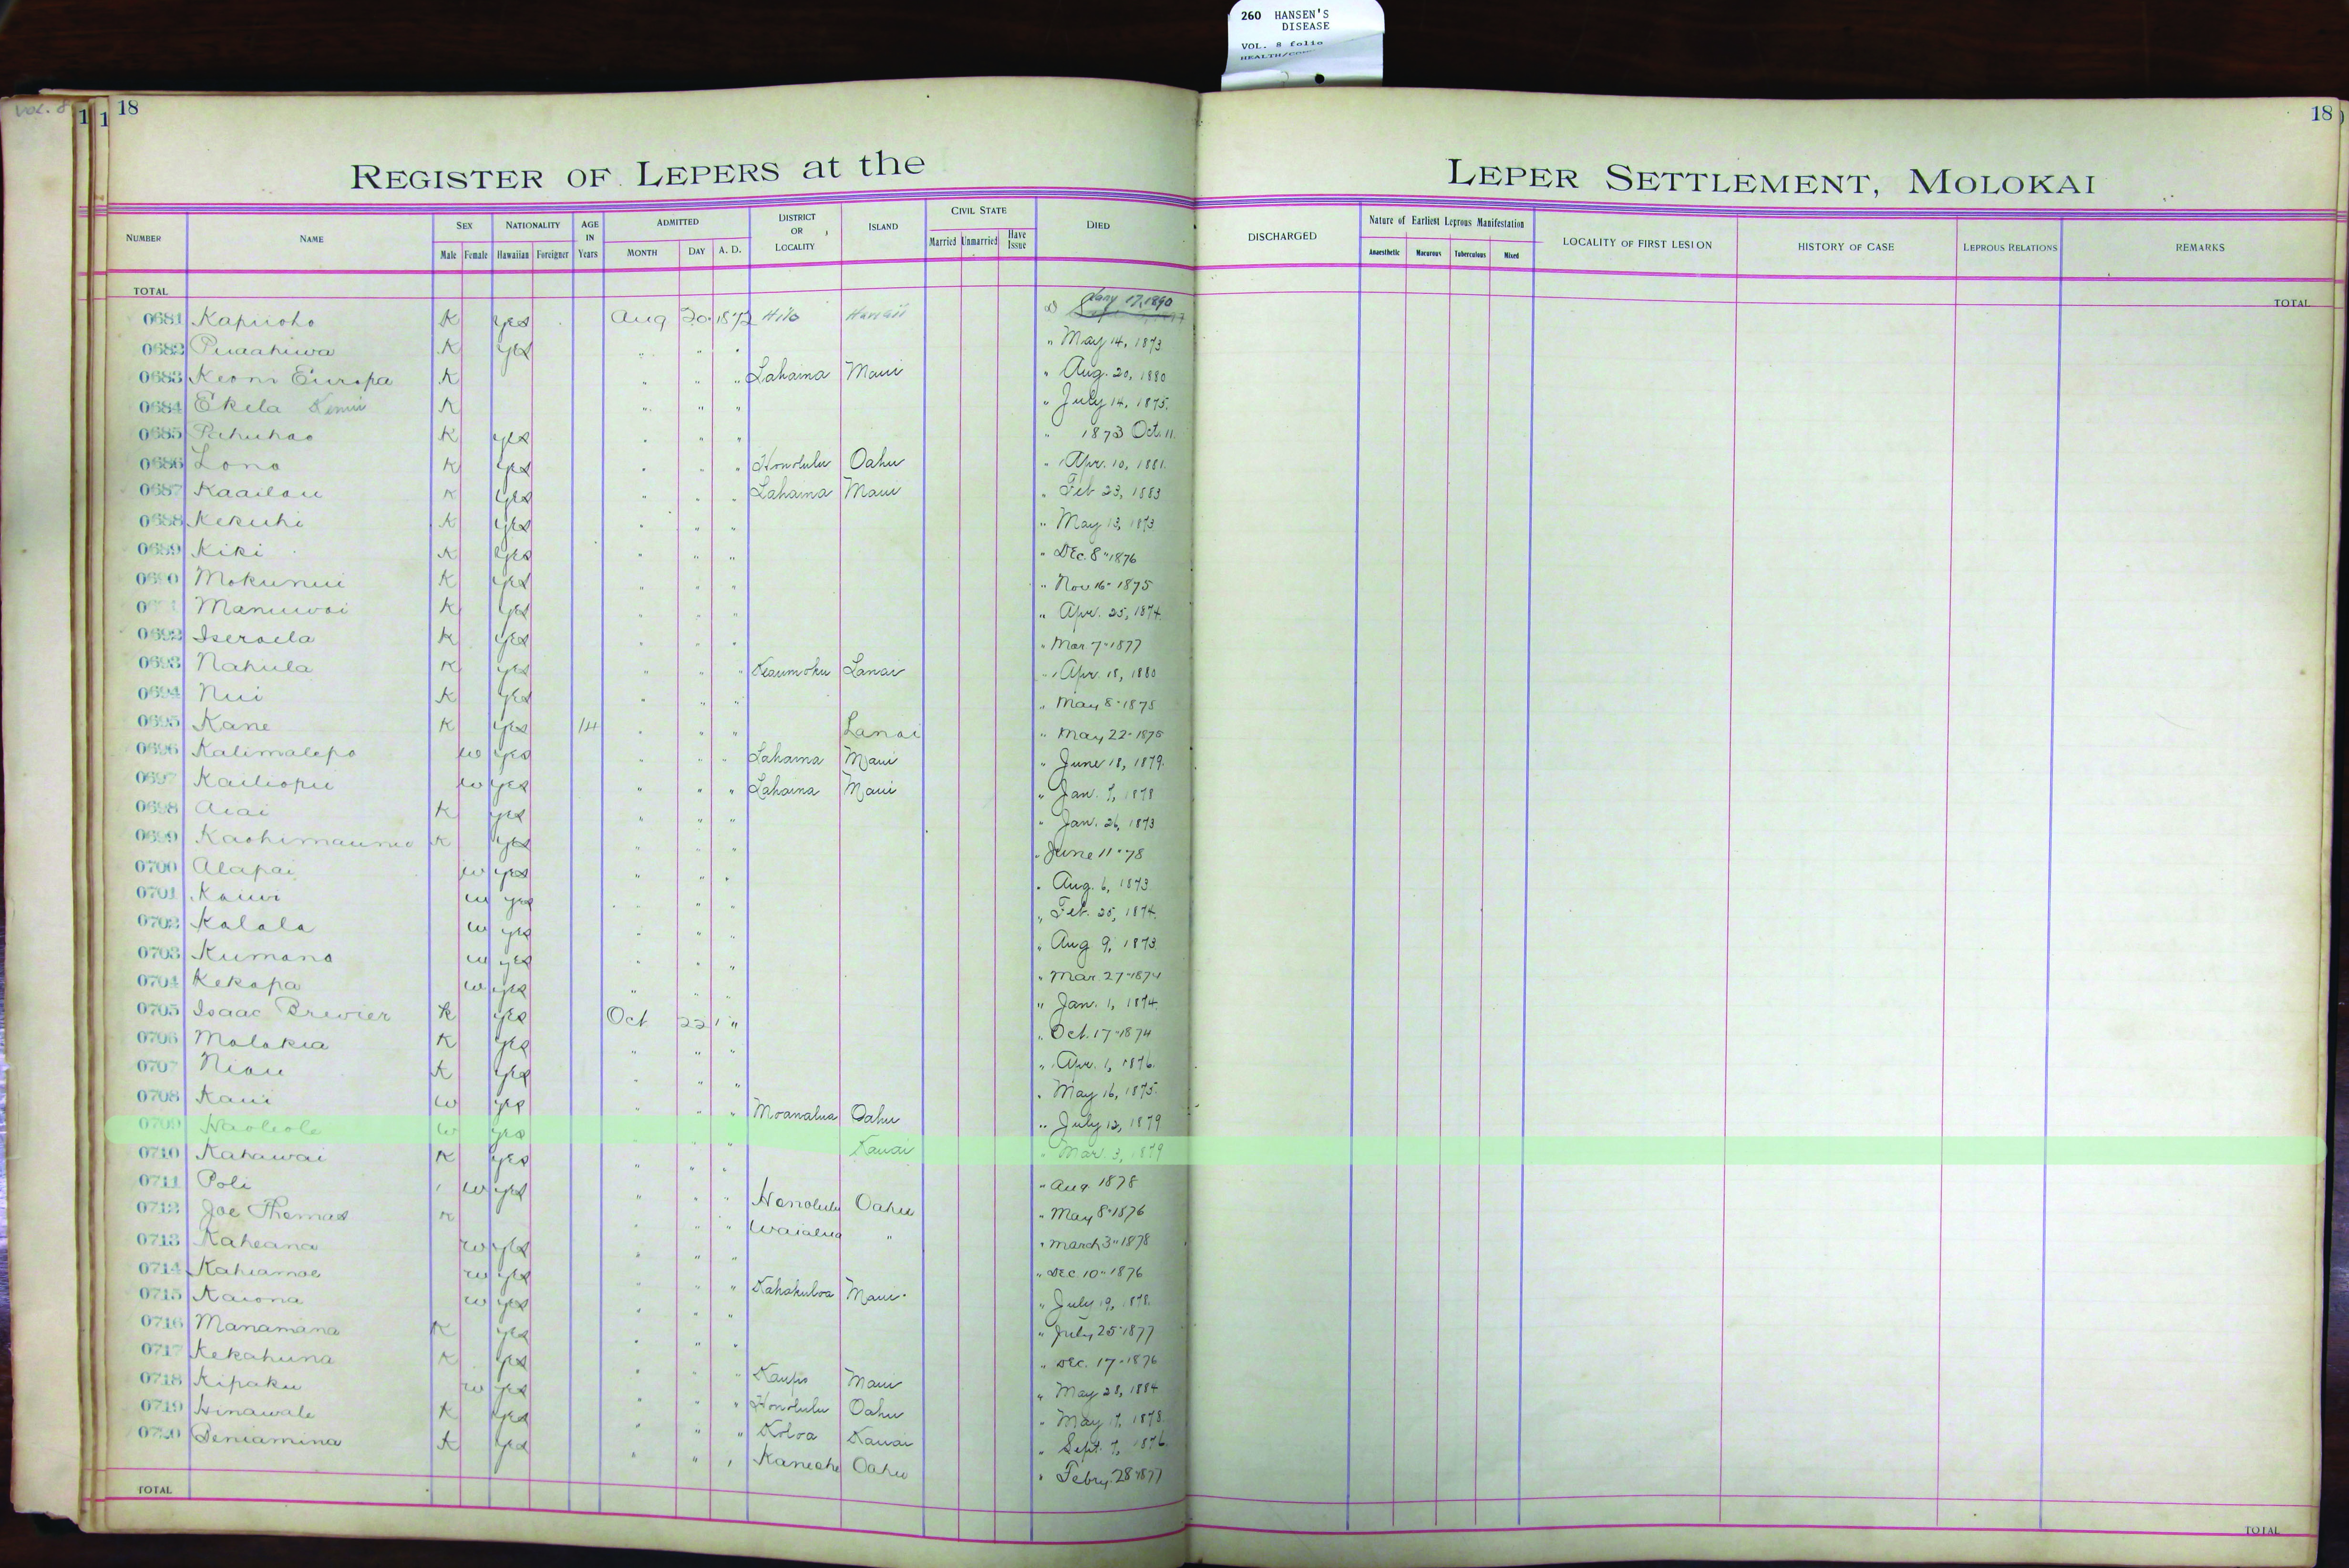 260 HANSEN'S
DISEASE
VOL. 8 folio
Vol. 8
1 1 18
18
REGISTER OF LEPERS at the LEPER SETTLEMENT, MOLOKAI
NUMBER NAME SEX Male Female NATIONALITY Hawaiian Foreigner AGE IN Years ADMITTED MONTH DAY A. D. DISTRICT OR LOCALITY ISLAND CIVIL STATE Married Unmarried Have Issue DIED DISCHARGED Nature of Earliest Leprous Manifestation Anaesthetic Macurous Tuberculous Mixed LOCALITY OF FIRST LESION HISTORY OF CASE LEPROUS RELATIONS REMARKS
TOTAL TOTAL
0681 Kapiioho K yes Aug 20 1872 Hilo Hawaii Jany 17, 1890
0682 Puaahiwa K yes " " " " May 14, 1873
0683 Keoni Europa K " " " Lahaina Maui " Aug. 20, 1880
0684 Ekela K " " " " July 14, 1875.
0685 Pahuhao K yes " " " " 1873 Oct. 11.
0686 Lono K yes " " " Honolulu Oahu " Apr. 10, 1881.
0687 Kaailau K yes " " " Lahaina Maui " Feb 23, 1883
0688 Kekuhi K yes " " " " May 13, 1873
0689 Kiki K yes " " " " Dec. 8" 1876
0690 Mokunui K yes " " " " Nov 16" 1875
Manuwai K yes " " " " Apr. 25, 1874.
0692 Iseraela K yes " " " " Mar 7" 1877
0693 Nahula K yes " " " Keaumoku Lanai " Apr. 18, 1880
0694 Nui K yes " " " " May 8" 1875
0695 Kane K yes 14 " " " Lanai " May 22" 1875
0696 Kalimalepo w yes " " " Lahaina Maui " June 18, 1879.
0697 Kailiopu w yes " " " Lahaina Maui " Jan. 7, 1878
0698 Aiai K yes " " " " Jan. 26, 1873
0699 K yes " " " " June 11" 78
0700 Alapai w yes " " " " Aug. 6, 1873
0701 Kauwi w yes " " " " Feb. 25, 1874.
0702 Kalala w yes " " " " Aug 9, 1873
0703 Kumano w yes " " " " Mar 27" 1874
0704 Kekapa w yes " " " " Jan. 1, 1874.
0705 Isaac Brewier K yes Oct 22 " " Oct. 17" 1874
0706 Molokia K yes " " " " Apr. 1, 1876.
0707 Niau K yes " " " " May 16, 1875.
0708 Kaui w yes " " " Moanalua Oahu " July 12, 1879
0709 Haoleole w yes " " " Kauai " Mar. 3, 1879
0710 Kahawai K yes " " " " Aug 1878
0711 Poli w yes " " " Honolulu Oahu " May 8" 1876
0712 Joe Thomas K " " " Waialua " " March 3" 1878
0713 Kaheana w yes " " " " Dec 10" 1876
0714 Kahiamoe w yes " " " Kahakuloa Maui " July 19, 1878.
0715 Kaiona w yes " " " July 25" 1877
0716 Manamana K yes " " " Dec. 17" 1876
0717 Kekahuna K yes " " " Kaupo Maui " May 28, 1884
0718 Kipaku w yes " " " Honolulu Oahu " May 17, 1878.
0719 Hinawale K yes " " " Koloa Kauai " Sept. 7, 1876.
0720 Beniamina K yes " " " Kaneohe Oahu " Febry. 28" 1877
TOTAL TOTAL